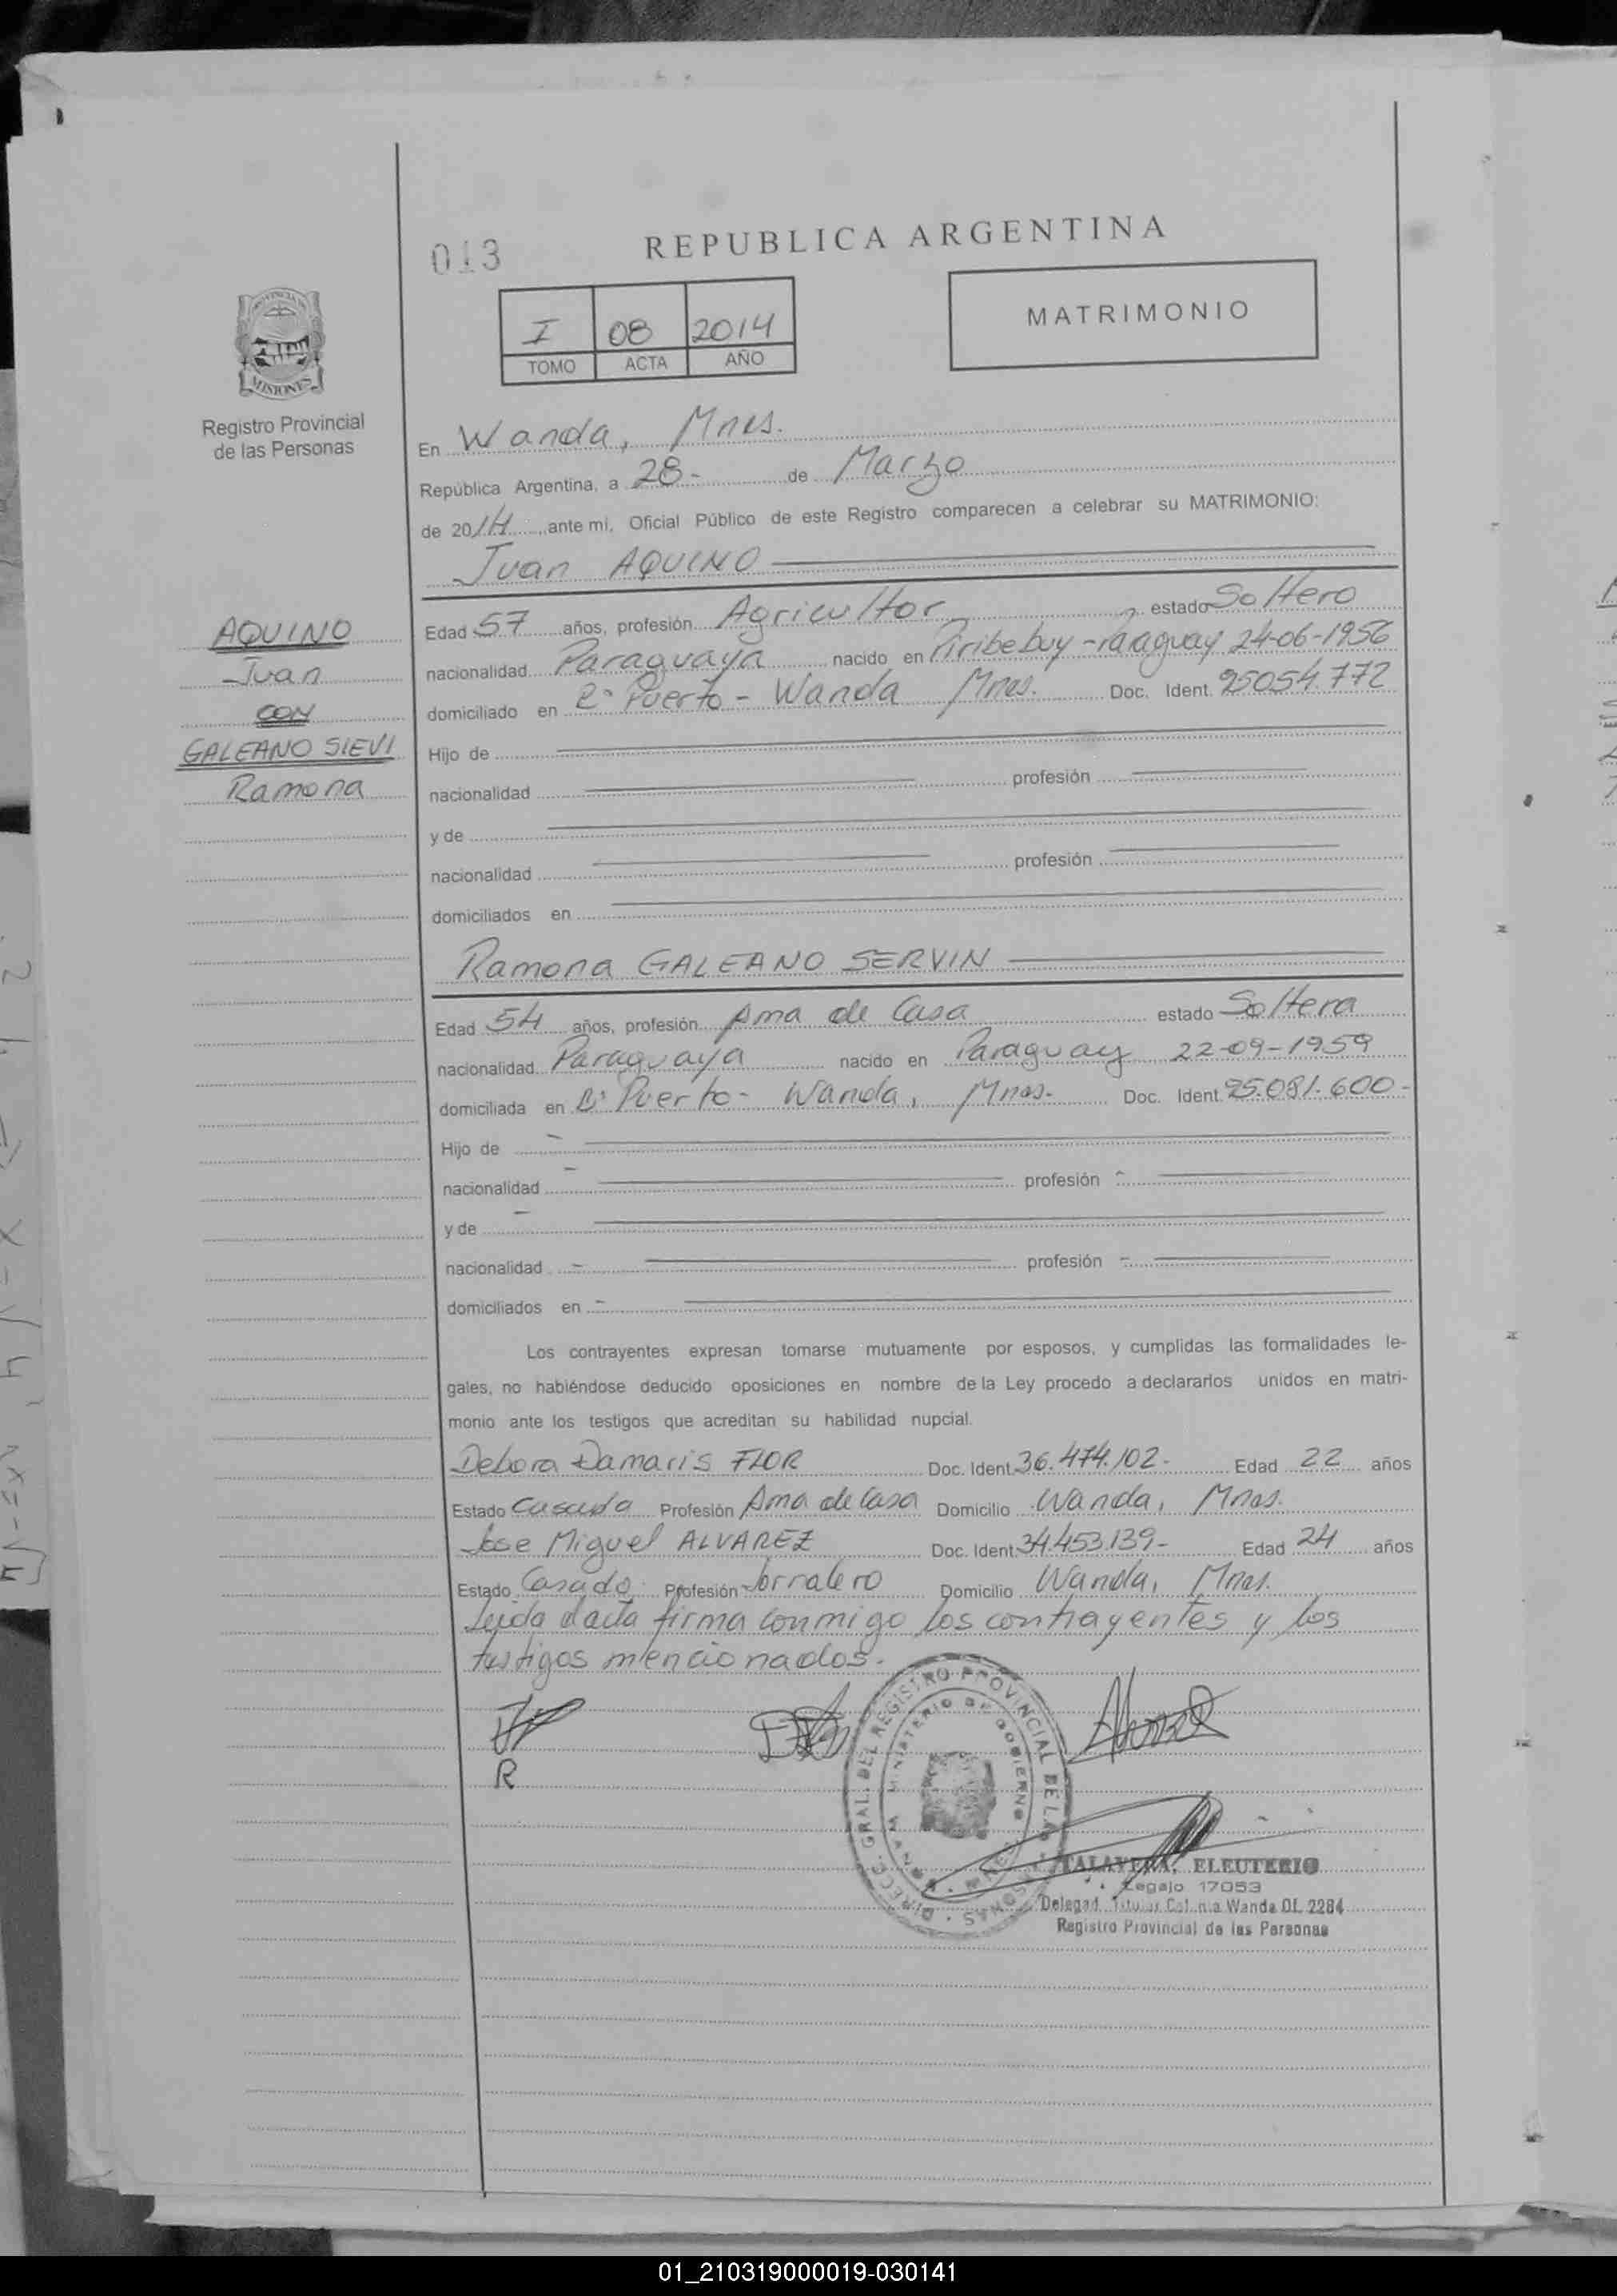 013
REPUBLICA ARGENTINA
I 08 2014
TOMO ACTA AÑO
MATRIMONIO
PROVINCIA DE
MISIONES
Registro Provincial
de las Personas
En Wanda, Mnes.
República Argentina, a 28- de Marzo
de 2014 ante mi, Oficial Público de este Registro comparecen a celebrar su MATRIMONIO:
Juan AQUINO
AQUINO
Juan
CON
GALEANO SIEVI
Ramona
Edad 57 años, profesión Agricultor estado Soltero
nacionalidad Paraguaya nacido en Piribebuy - Paraguay 24-06-1956
domiciliado en Bº Puerto - Wanda Mnes. Doc. Ident. 95054.772
Hijo de
nacionalidad profesión
y de
nacionalidad profesión
domiciliados en
Ramona GALEANO SERVIN
Edad 54 años, profesión Ama de Casa estado Soltera
nacionalidad Paraguaya nacido en Paraguay 22-09-1959
domiciliada en Bº Puerto - Wanda, Mnes. Doc. Ident. 95.081.600-
Hijo de -
nacionalidad - profesión -
y de -
nacionalidad - profesión -
domiciliados en -
Los contrayentes expresan tomarse mutuamente por esposos, y cumplidas las formalidades le-
gales, no habiéndose deducido oposiciones en nombre de la Ley procedo a declararlos unidos en matri-
monio ante los testigos que acreditan su habilidad nupcial.
Debora Damaris FLOR Doc. Ident. 36.474.102- Edad 22 años
Estado Casada Profesión Ama de Casa Domicilio Wanda, Mnes.
Jose Miguel ALVAREZ Doc. Ident. 34.453.139- Edad 24 años
Estado Casado Profesión Jornalero Domicilio Wanda, Mnes.
Leida el acta firma conmigo los contrayentes y los
testigos mencionados.
R
DIRECC. GRAL. DEL REGISTRO PROVINCIAL DE LAS PERSONAS
MINISTERIO DE GOBIERNO
TALAVERA, ELEUTERIO
Legajo 17053
Delegad. Titular Colonia Wanda Of. 2284
Registro Provincial de las Personas
01_210319000019-030141